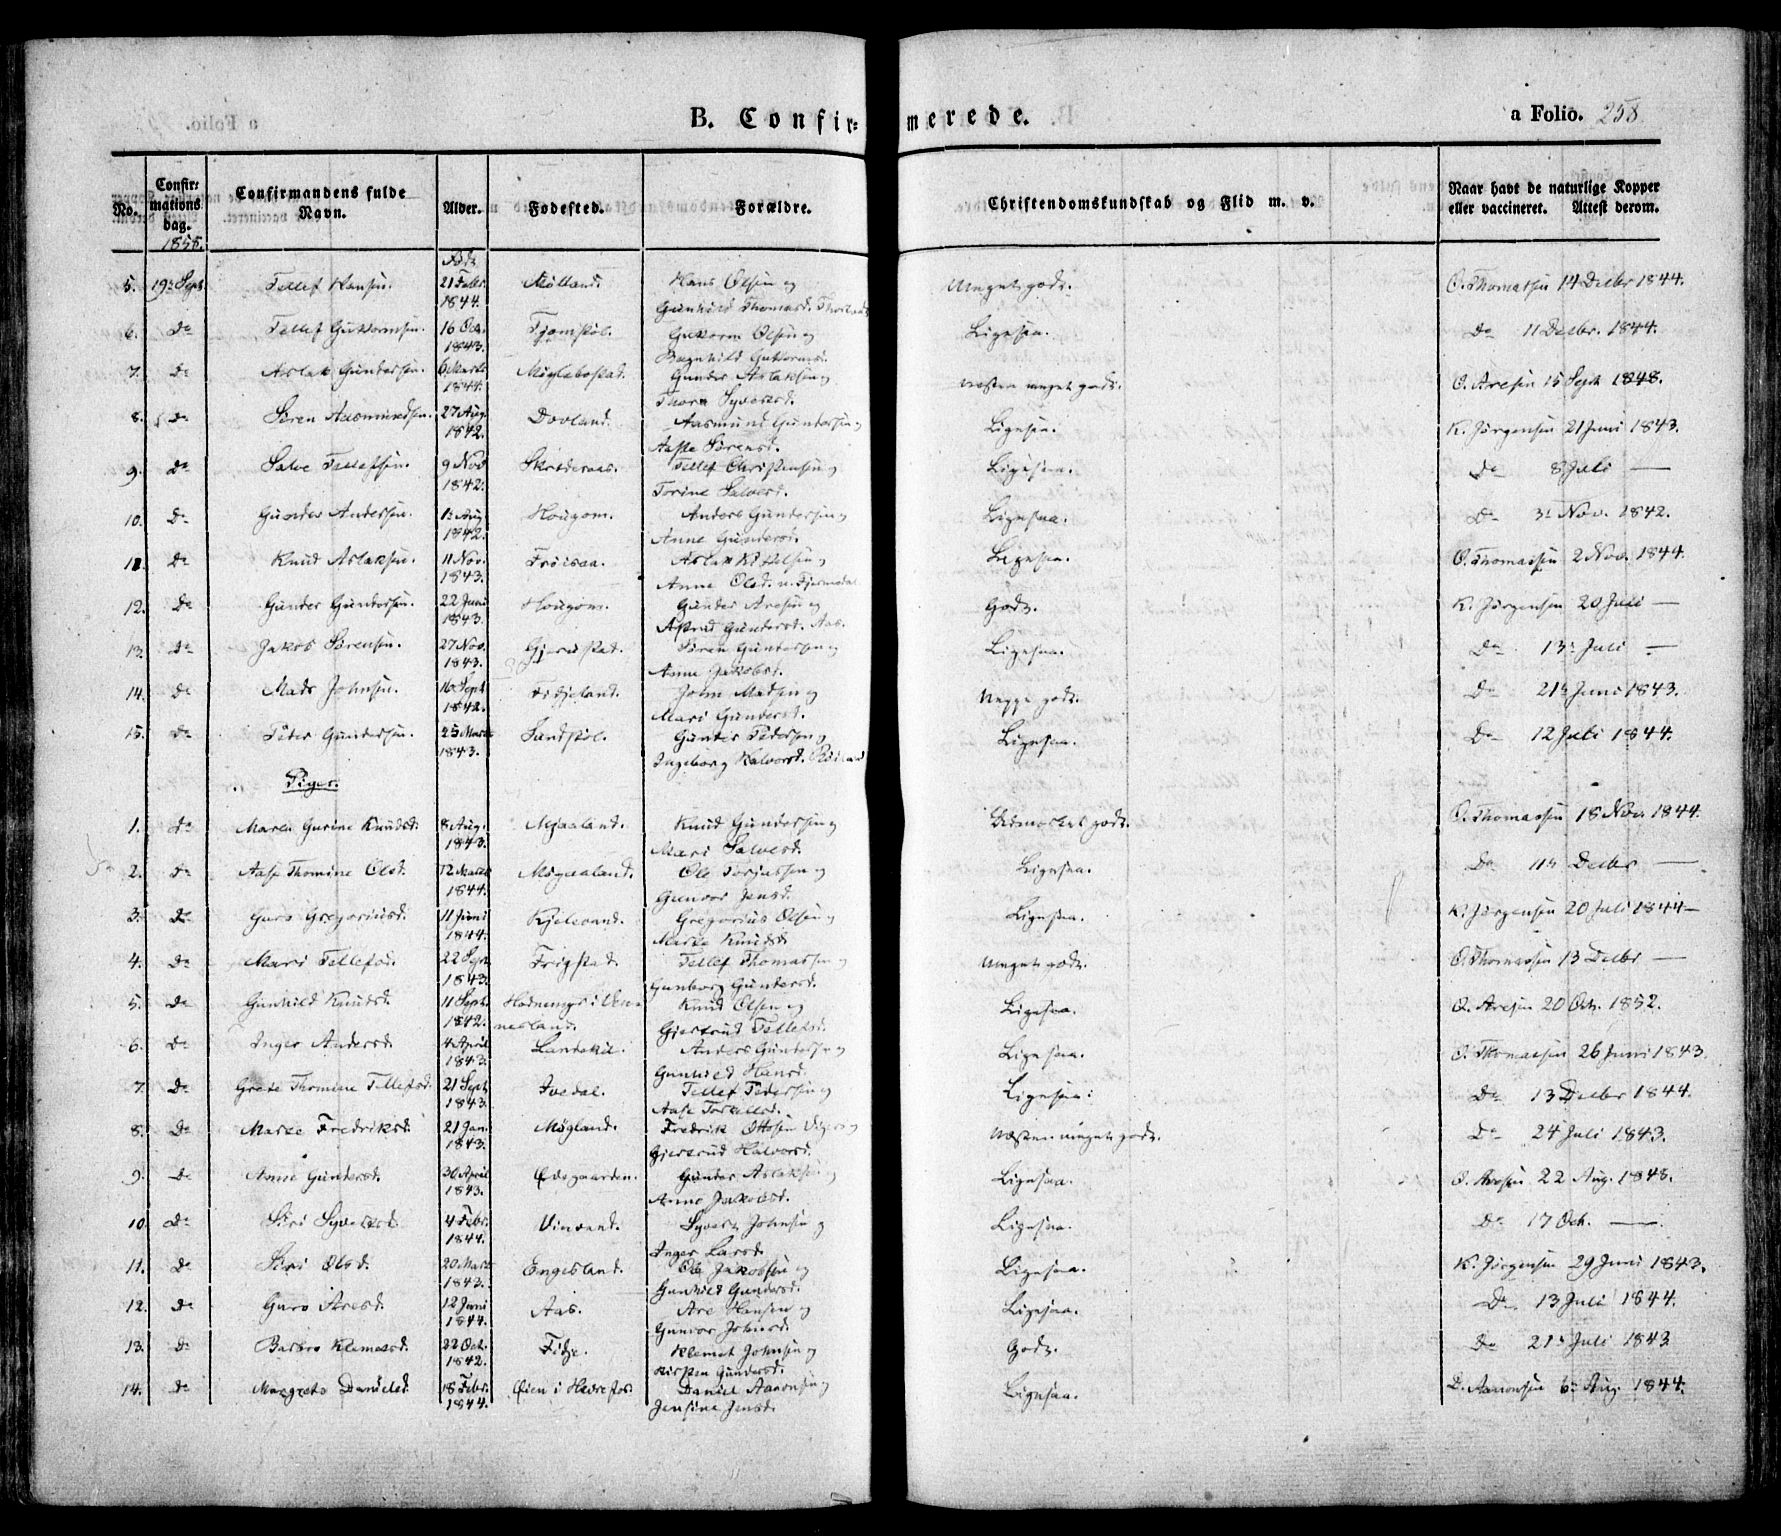 B. Confir= merede. a Folio. 258
No. Confir= mations dag. 1858. Confirmandens fulde Navn. Alder. Fødested. Forældre. Christendomskundskab og Flid m. v. Naar havt de naturlige Kopper eller vaccineret. Attest derom.
5. 19: Sept Tellef Hansen. 21 Febr. 1844. Mølland. Hans Olsen og Meget godt. O. Thomassen 14 Decbr 1844.
Gunhild Thomasd.
6. Do Tellef Guttormsen. 16 Oct. 1843. Guttorm Olsen og Ligesaa. Do 11 Decbr. 1844.
Ragnhild Guttormsd.
7. Do Aslak Gundersen. 6 Marts 1844. Møglebostad. Gunder Aslaksen og Næsten meget godt. O. Aresen 15 Sept 1848.
Thore Syversd.
8. Do Søren Aasmundsen. 27 Aug. 1842. Dovland. Aasmund Gundersen og Ligesaa. K. Jørgensen 21 Juni 1843.
Aasse Sørensd.
9. Do Salve Tellefsen. 9 Nov 1842. Skraderaas. Tellef Christensen og Ligesaa. Do 8 Juli —
Torine Salvesd.
10. Do Gunder Andersen. 13 Aug 1842. Hougom. Anders Gundersen og Ligesaa. Do 3: Nov. 1842.
Anne Gundersd.
11. Do Knud Aslaksen. 11 Nov. 1843. Frøisaa. Aslak Kittelsen og Ligesaa. O. Thomassen 2 Nov. 1844.
Anne Olsd.
12. Do Gunder Gundersen. 22 Juni 1843. Hougom. Gunder Aresen og Godt. K. Jørgensen 20 Juli —
Astrid Gundersd. Aas.
13. Do Jakob Sørensen. 27 Nov. 1843. Gjerustat. Søren Gundersen og Ligesaa. Do 13: Juli —
Anne Jakobsd.
14. Do Mads Johnsen. 16 Sept 1842. Fidjeland. John Madsen og Neppe godt. Do 21: Juni 1843.
Mari Gundersd.
15. Do Peder Gundersen. 25 Marts 1843. Sandskol. Gunder Pedersen og Ligesaa. Do 12 Juli 1844.
Ingeborg Halvorsd.
Piger.
1. Do Maren Gurine Knudsd. 8 Aug. 1843. Mjaaland. Knud Gundersen og Udmærket godt. O. Thomassen 18 Nov. 1844.
Mari Salvesd.
2. Do Aase Thomine Olsd. 12 Marts 1844. Ole Torjussen og Ligesaa. Do 11: Decbr —
Gunvor Jensd.
3. Do Guro Gregoriusd. 11 Juni 1844. Kjelevand. Gregorius Olsen og Ligesaa. K. Jørgensen 20 Juli 1844 —
Maree Knudsd
4. Do Mari Tellefsd. 22 Sept 1843. Frigstad. Tellef Thomassen og Meget godt. O. Thomassen 13 Decbr —
Gunborg Gundersd.
5. Do Gunhild Knudsd. 11 Sept. 1842. Hodnemyr i Vennesland. Knud Olsen og Ligesaa. O. Aresen 20 Oct. 1852.
Gjertrud Tellefsd.
6. Do Inger Andersd. 4 April 1843. Landskil. Anders Gundersen og Ligesaa. O. Thomassen 26 Juni 1843.
Gunhild Hansd.
7. Do Grete Thomine Tellefsd. 21 Sept 1843. Ivedal. Tellef Pedersen og Ligesaa. Do 13 Decbr 1844.
Aase Torkelsd.
8. Do Maree Fredriksd. 21 Jan. 1843. Møgland. Fredrik Ottosen og Næsten meget godt. Do 24 Juli 1843.
Gjertrud Halvorsd.
9. Do Anne Gundersd. 30 April 1843. Ødegaarden. Gunder Aslaksen og Ligesaa. O. Aresen 22 Aug. 1848.
Anne Jakobsd.
10. Do Siri Syversd. 4 Febr. 1844. Vinvand. Syvert Johnsen og Ligesaa. Do 17 Oct. —
Inger Larsd.
11. Do Siri Olsd. 20 Marts 1843. Engesland. Ole Jakobsen og Ligesaa. K. Jørgensen 29 Juni 1843.
Gunhild Gundersd.
12. Do Guro Aresd. 12 Juni 1844. Aas. Are Hansen og Ligesaa. Do 13 Juli 1844.
Gunvor Johnsd.
13. Do Barbro Klemetsd. 22 Oct. 1842. Fidje. Klemet Johnsen og Godt. Do 21: Juli 1843
Kirsten Gundersd.
14. Do Margrete Danielsd. 18 Febr. 1844. Øien i Hærefos. Daniel Aaronsen og Ligesaa. D. Aaronsen 6: Aug. 1844.
Jensine Jensd.